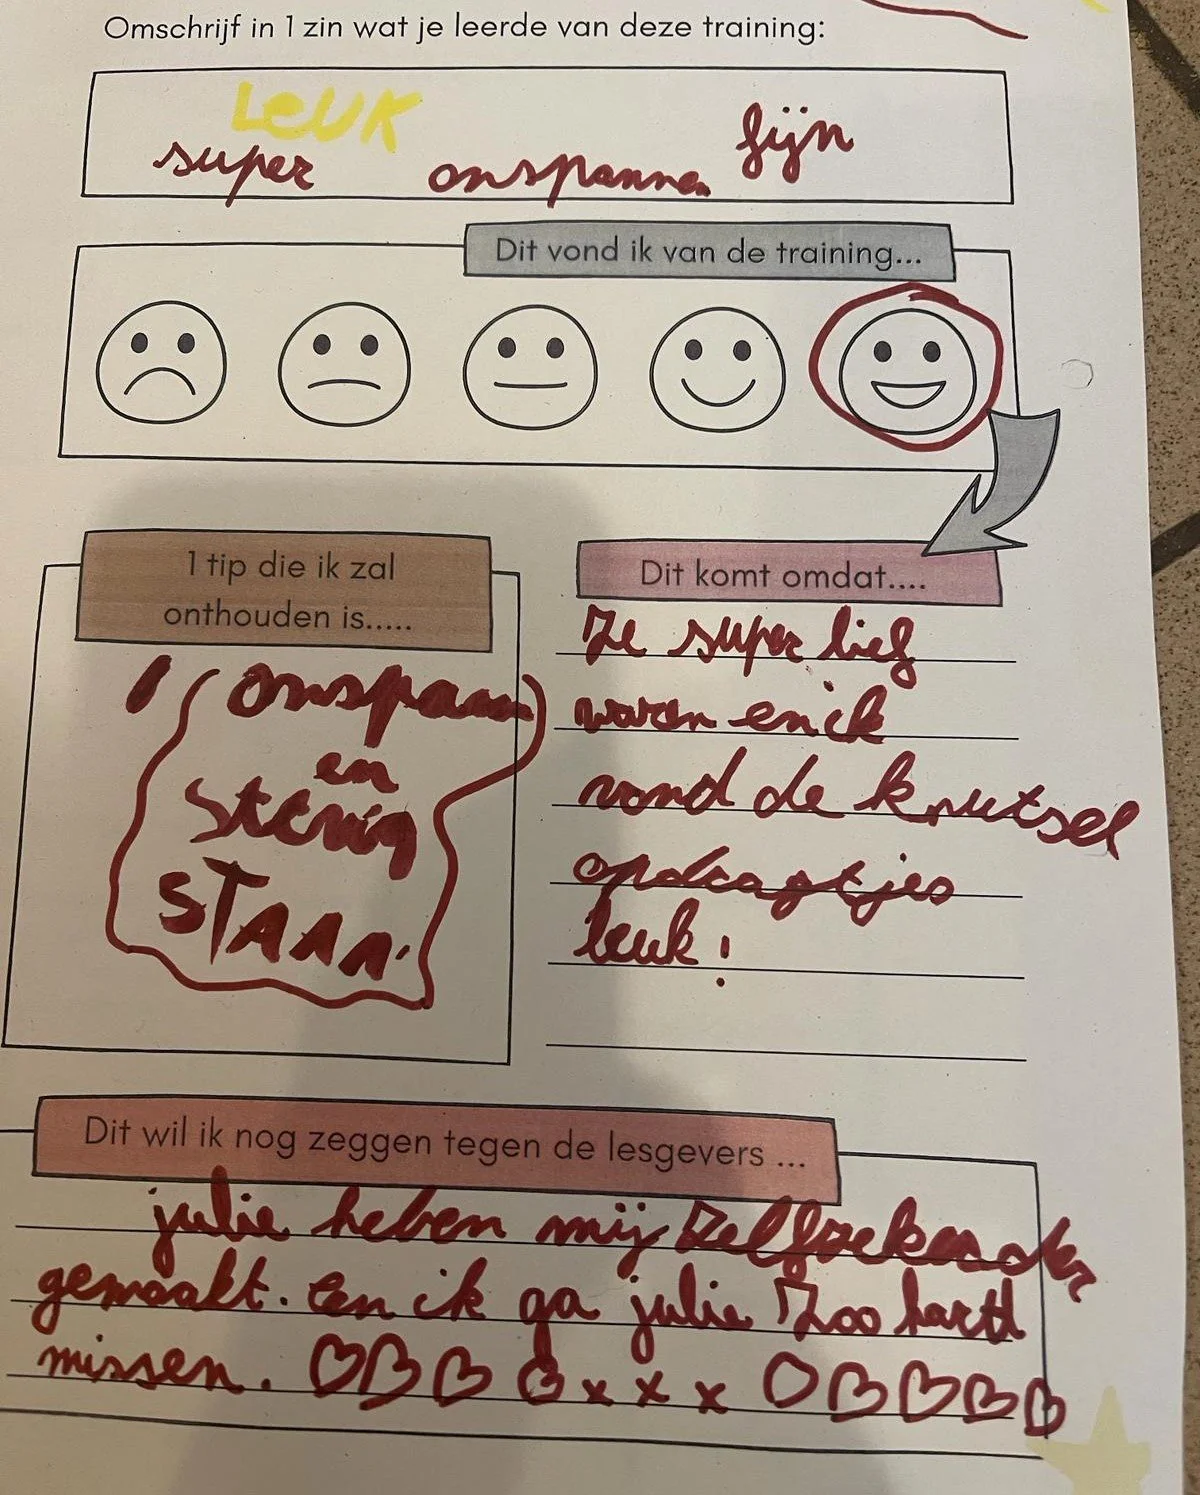 Omschrijf in 1 zin wat je leerde van deze training:
LeUK
super onspannen fijn
Dit vond ik van de training...
1 tip die ik zal
onthouden is.....
onspann
en
stevig
STAAN.
Dit komt omdat....
Ze super lief
waren en ik
vond de knutsel
opdragtjes
leuk!
Dit wil ik nog zeggen tegen de lesgevers ...
julie heben mij zelfzekerder
gemaakt. en ik ga julie zoo hartl
missen. ♡♡♡♡xxx♡♡♡♡♡